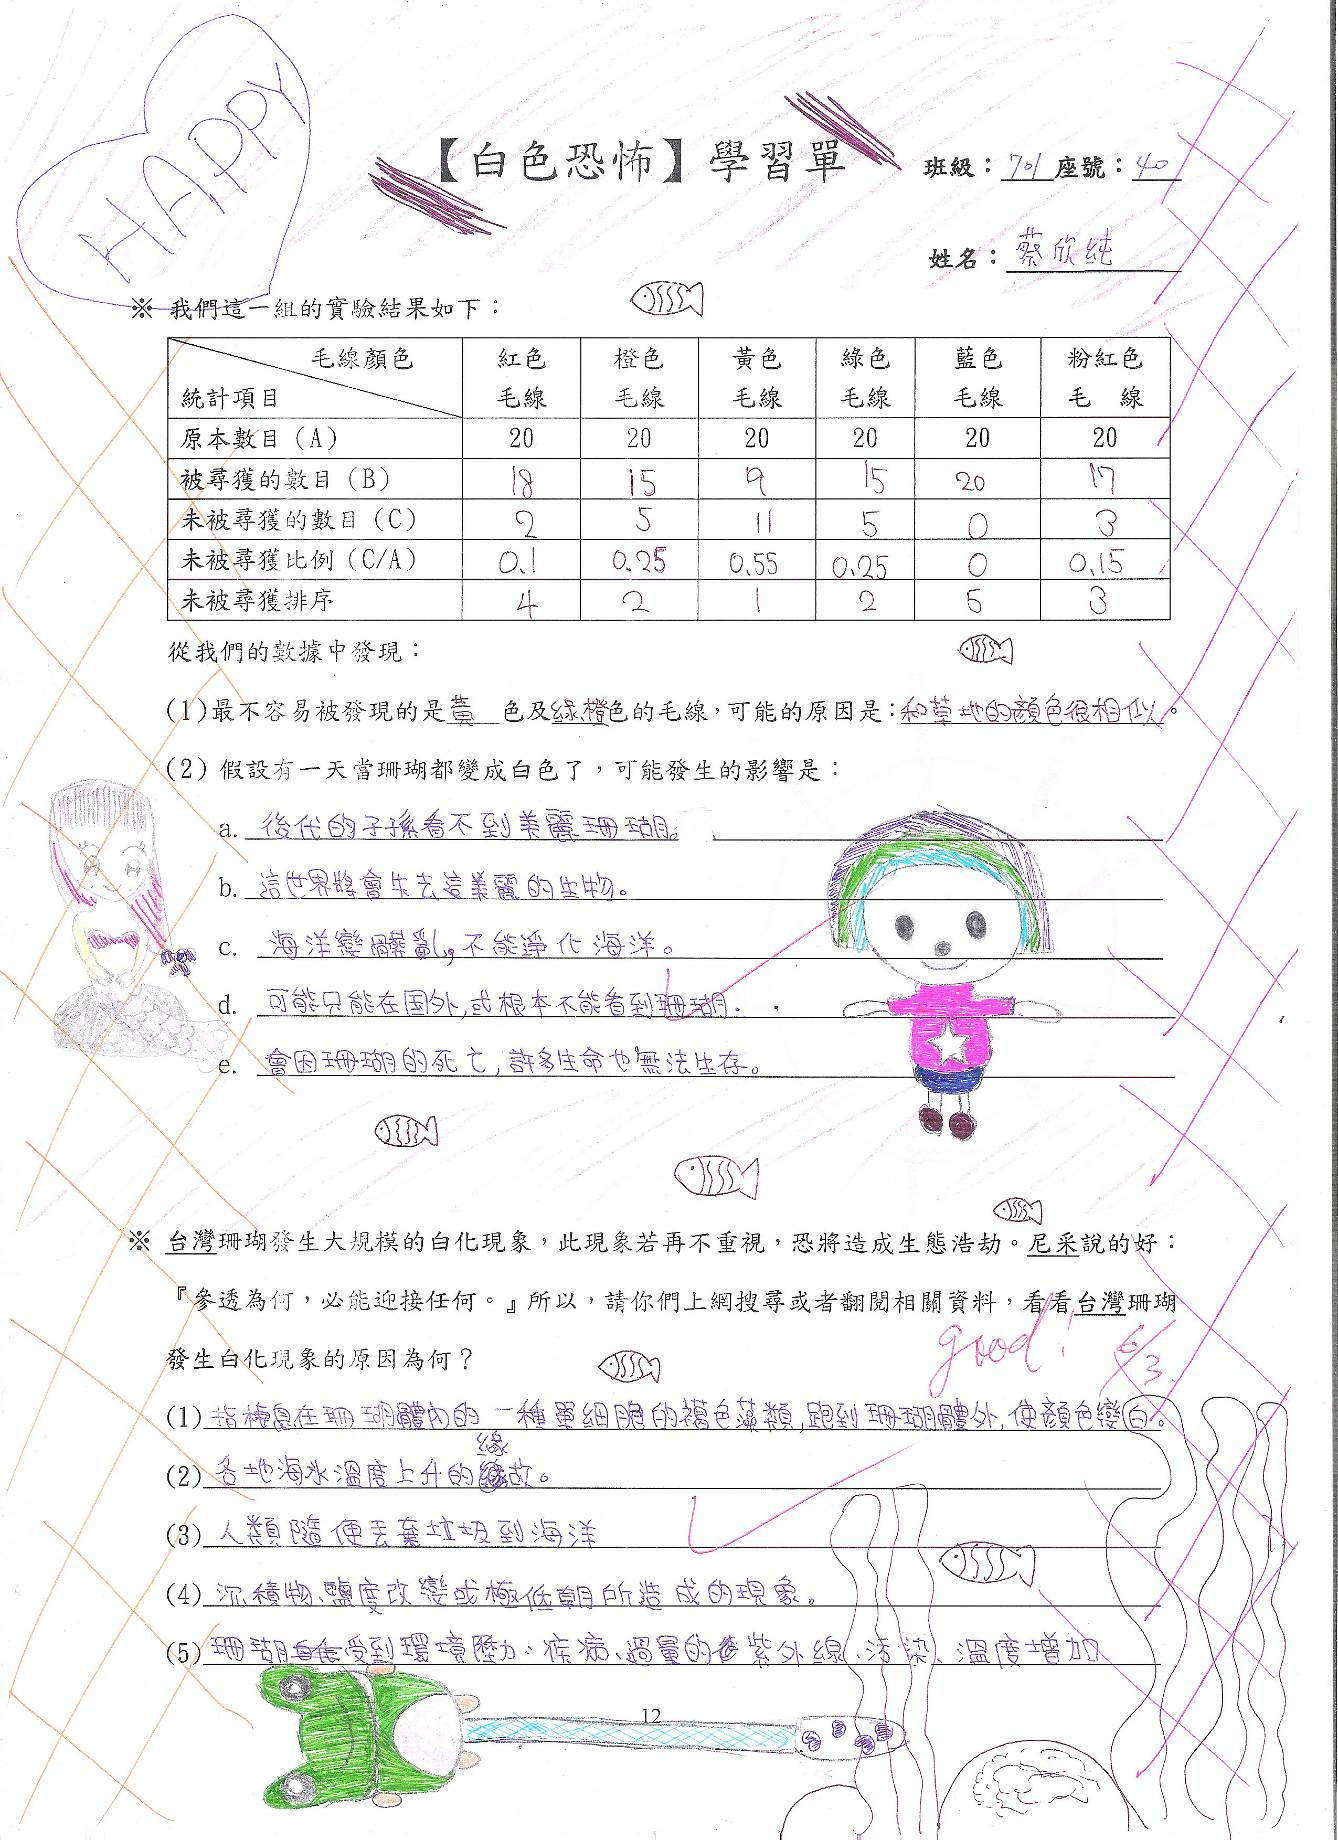 HAPPY
【白色恐怖】學習單
班級：701 座號：40
姓名：蔡欣純
※ 我們這一組的實驗結果如下：
毛線顏色 統計項目 紅色毛線 橙色毛線 黃色毛線 綠色毛線 藍色毛線 粉紅色毛線
原本數目（A） 20 20 20 20 20 20
被尋獲的數目（B） 18 15 9 15 20 17
未被尋獲的數目（C） 2 5 11 5 0 3
未被尋獲比例（C/A） 0.1 0.25 0.55 0.25 0 0.15
未被尋獲排序 4 2 1 2 5 3
從我們的數據中發現：
(1)最不容易被發現的是黃色及綠橙色的毛線，可能的原因是：和草地的顏色很相似。
(2) 假設有一天當珊瑚都變成白色了，可能發生的影響是：
a. 後代的子孫看不到美麗珊瑚。
b. 這世界將會失去這美麗的生物。
c. 海洋變髒亂，不能淨化海洋。
d. 可能只能在国外，或根本不能看到珊瑚.
e. 會因珊瑚的死亡，許多生命也無法生存。
※ 台灣珊瑚發生大規模的白化現象，此現象若再不重視，恐將造成生態浩劫。尼采說的好：
『參透為何，必能迎接任何。』所以，請你們上網搜尋或者翻閱相關資料，看看台灣珊瑚
發生白化現象的原因為何？
good! 6/3
(1) 指棲息在珊瑚體內的一種單細胞的褐色藻類，跑到珊瑚體外，使顏色變白。
(2) 各地海水溫度上升的緣故。
(3) 人類隨便丟棄垃圾到海洋
(4) 沉積物、鹽度改變或極低潮所造成的現象。
(5) 珊瑚受到環境壓力、疾病、過量的紫外線、污染、溫度增加
12